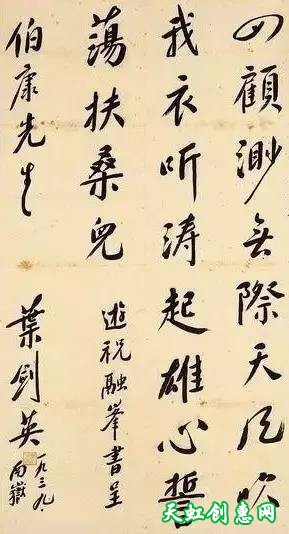 四顾渺无际天风吹
我衣听涛起雄心誓
荡扶桑儿
游祝融峯书呈
伯康先生
葉剑英 一九三九、
南嶽
天虹创惠网